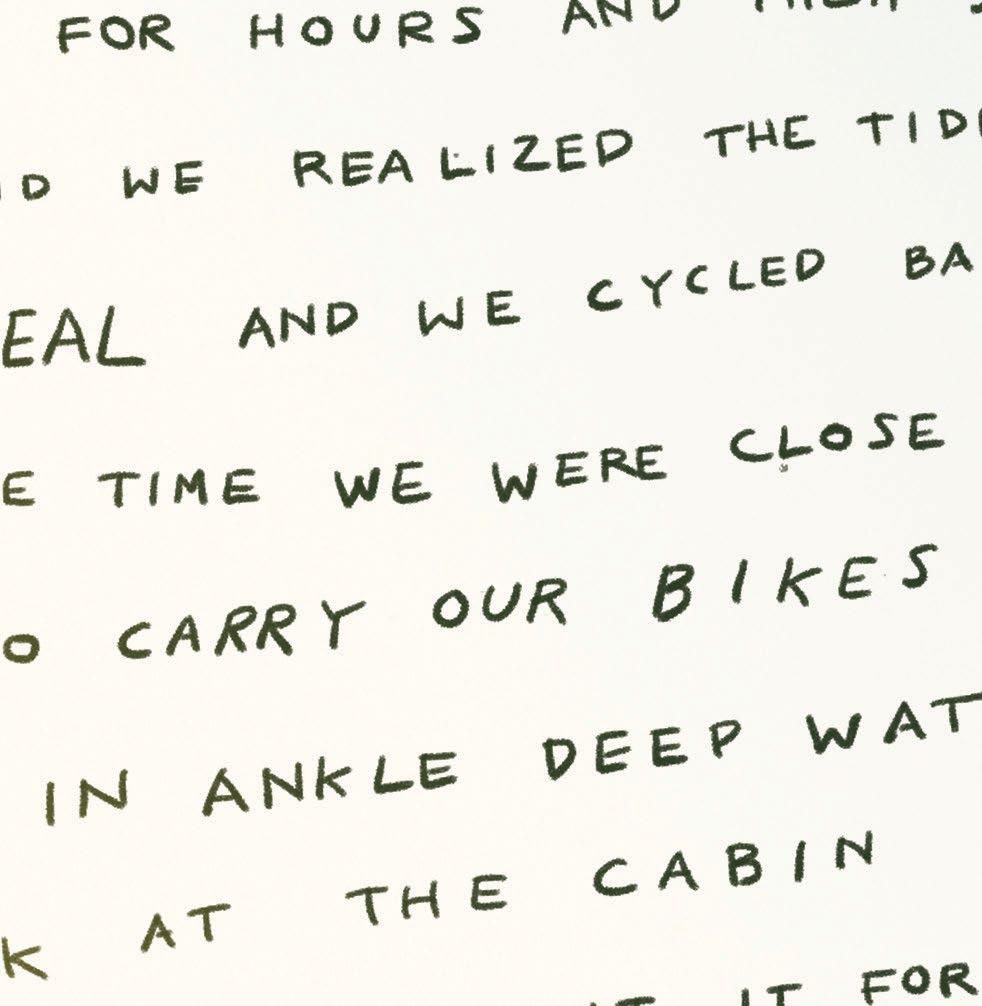 FOR HOURS AND
WE REALIZED THE
AND WE CYCLED
TIME WE WERE CLOSE
CARRY OUR BIKES
IN ANKLE DEEP
AT THE CABIN
IT FOR